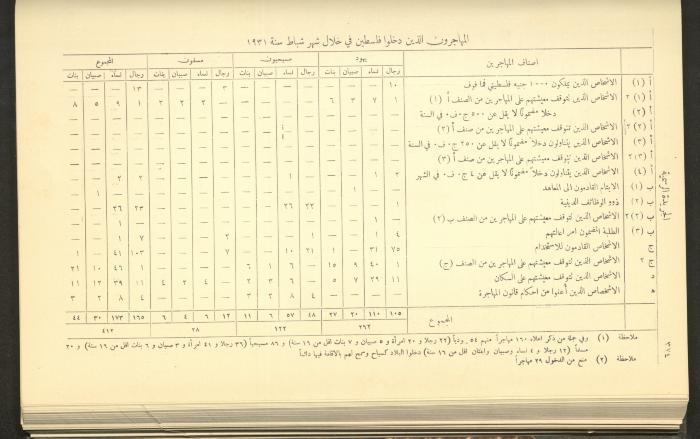 المهاجرون الذين دخلوا فلسطين في خلال شهر شباط سنة ١٩٣١
اصناف المهاجرين يهود مسيحيون مسلمون المجموع
رجال نساء صبيان بنات رجال نساء صبيان بنات رجال نساء صبيان بنات رجال نساء صبيان بنات
أ (١) الاشخاص الذين يملكون ١٠٠٠ جنيه فلسطيني فما فوق ١٠ — — — — — — — ٣ — — — ١٣ — — —
أ (١) ٢ الاشخاص الذين تتوقف معيشتهم على المهاجرين من الصنف أ (١) ١ ٧ ٣ ٦ — — — — — ٢ ٢ ٢ ١ ٩ ٥ ٨
أ (٢) دخلا مضمونًا لا يقل عن ٥٠٠ ج.ف. في السنة
أ (٢) ٢ الاشخاص الذين تتوقف معيشتهم على المهاجرين من صنف أ (٢)
أ (٣) الاشخاص الذين يتناولون دخلاً مضمونًا لا يقل عن ٢٥٠ ج.ف. في السنة
أ (٣) ٢ الاشخاص الذين تتوقف معيشتهم على المهاجرين من صنف أ (٣)
أ (٤) الاشخاص الذين يتناولون دخلاً مضمونًا لا يقل عن ٤ ج.ف. في الشهر ٢ ١ — — — ١ — — — — — — ٢ ٢ — —
ب (١) الايتام القادمون الى المعاهد — — ١ — — — — — — — — — — — ١ —
ب (٢) ذوو الوظائف الدينية — — — — ٢٣ ٢٦ — — — — — — ٢٣ ٢٦ — —
ب (٢) ٢ الاشخاص الذين تتوقف معيشتهم على المهاجرين من الصنف ب (٢) — ١ — — — — — — — — — — — ١ — —
ب (٣) الطلبة المضمون امر اعالتهم ٤ ١ — — ١ — — — ٢ — — — ٧ ١ — —
ج الاشخاص القادمون للاستخدام ٧٥ ٣١ — ١ ٢١ ١٠ — — ٧ — — — ١٠٣ ٤١ — ١
ج ٢ الاشخاص الذين تتوقف معيشتهم على المهاجرين من الصنف (ج) ١ ٤٠ ٩ ١٥ — ٦ ١ ٦ — — — — ١ ٤٦ ١٠ ٢١
د الاشخاص الذين تتوقف معيشتهم على السكان ١١ ٢٩ ٧ ٥ — ٦ ٣ ٢ — ٤ ٢ ٤ ١١ ٣٩ ١٢ ١١
ه الاشخاص الذين أعفوا من احكام قانون المهاجرة — — — — ٤ ٨ ٢ ٣ — — — — ٤ ٨ ٢ ٣
المجموع ١٠٥ ١١٠ ٢٠ ٢٧ ٤٨ ٥٧ ٦ ١١ ١٢ ٦ ٤ ٦ ١٦٥ ١٧٣ ٣٠ ٤٤
٢٦٢ ١٢٢ ٢٨ ٤١٢
ملاحظة (١) وفي جملة من ذكر اعلاه ١٦٠ مهاجراً منهم ٥٤ يهودياً (٢٢ رجلا و ٢٠ امرأة و ٥ صبيان و ٧ بنات اقل من ١٦ سنة) و ٨٦ مسيحياً (٣٦ رجلا و ٤١ امرأة و ٣ صبيان و ٦ بنات اقل من ١٦ سنة) و ٢٠
مسلماً (١٢ رجلا و ٤ نساء وصبيان وابنتان اقل من ١٦ سنة) دخلوا البلاد كسياح وسمح لهم بالاقامة فيها دائماً
ملاحظة (٢) منع من الدخول ٢٩ مهاجراً
الجريدة الرسمية
٢٧٤